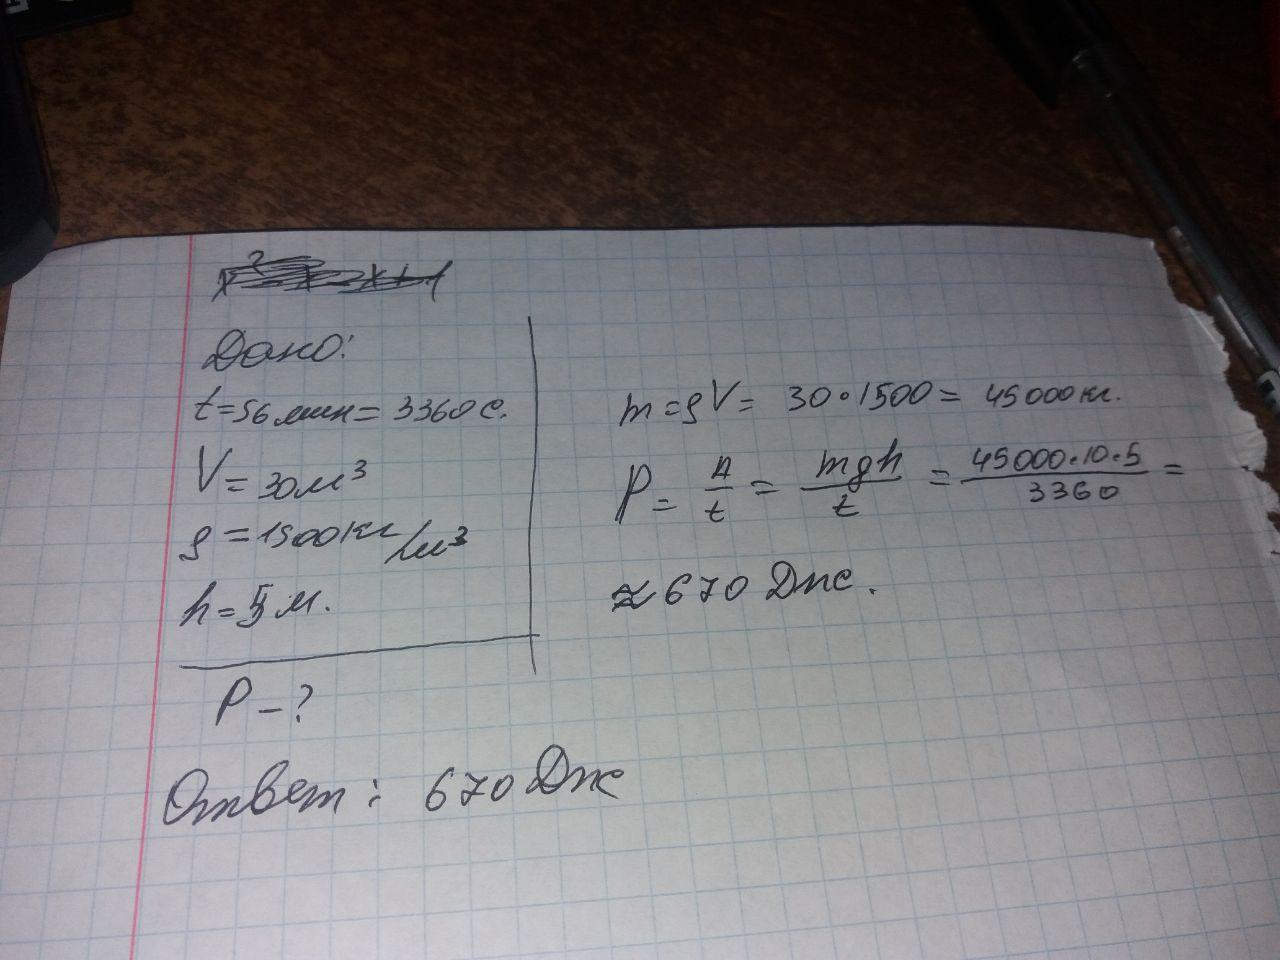 Дано:
t=56 мин = 3360 с.
V = 30 м³
ρ = 1500 кг/м³
h = 5 м.
P - ?
m = ρV = 30·1500 = 45000 кг.
P = A/t = mgh/t = 45000·10·5/3360 =
≈ 670 Дж.
Ответ: 670 Дж